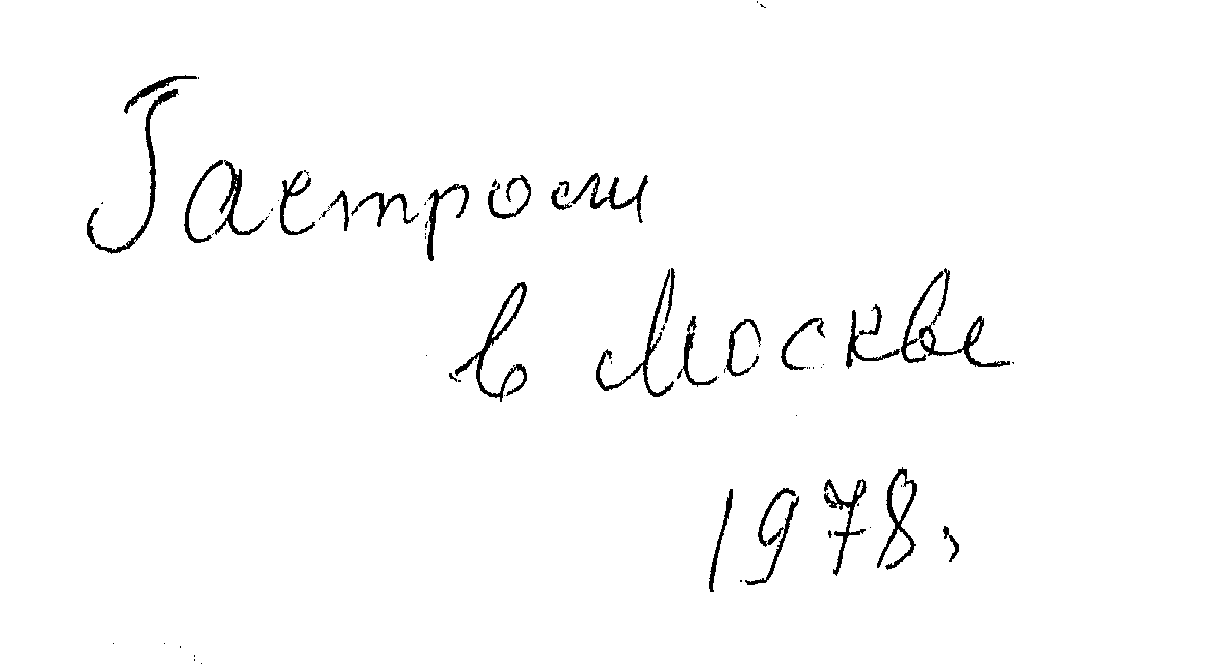 Гастроли
в Москве
1978,